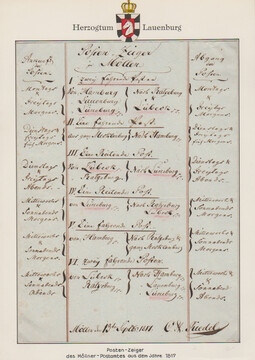 Herzogtum Lauenburg
Posten-Zeiger
Möllen
Ankunft der Posten
Abgang der Posten
I. Zwey fahrende Posten
Montags
Freytags
Morgens
von Hamburg
Lauenburg
Lüneburg
Nach Ratzeburg
Lübeck
Montags
Freytags
Morgens
II. Eine fahrende Post
Dienstags
Freytags
Nach Hamburg
III. Eine Reitende Post
Dienstags
Freytags
Abends
von Lübeck
Ratzeburg
Nach Lüneburg
Dienstags
Freytags
Abends
IV. Eine Reitende Post
Mittewochs
Sonnabends
Morgens
von Lüneburg
Nach Ratzeburg
Lübeck
Mittewochs
Sonnabends
Morgens
V. Eine fahrende Post
Mittewochs
Sonnabends
Morgens
von Hamburg
Nach Ratzeburg
Mittewochs
Sonnabends
Morgens
VI. Zwey fahrende Posten
Mittewochs
Sonnabends
Abends
von Lübeck
Ratzeburg
Nach Hamburg
Lauenburg
Lüneburg
Mittewochs
Sonnabends
Abends
Posten-Zeiger
des Möllner Postamtes aus dem Jahre 1817